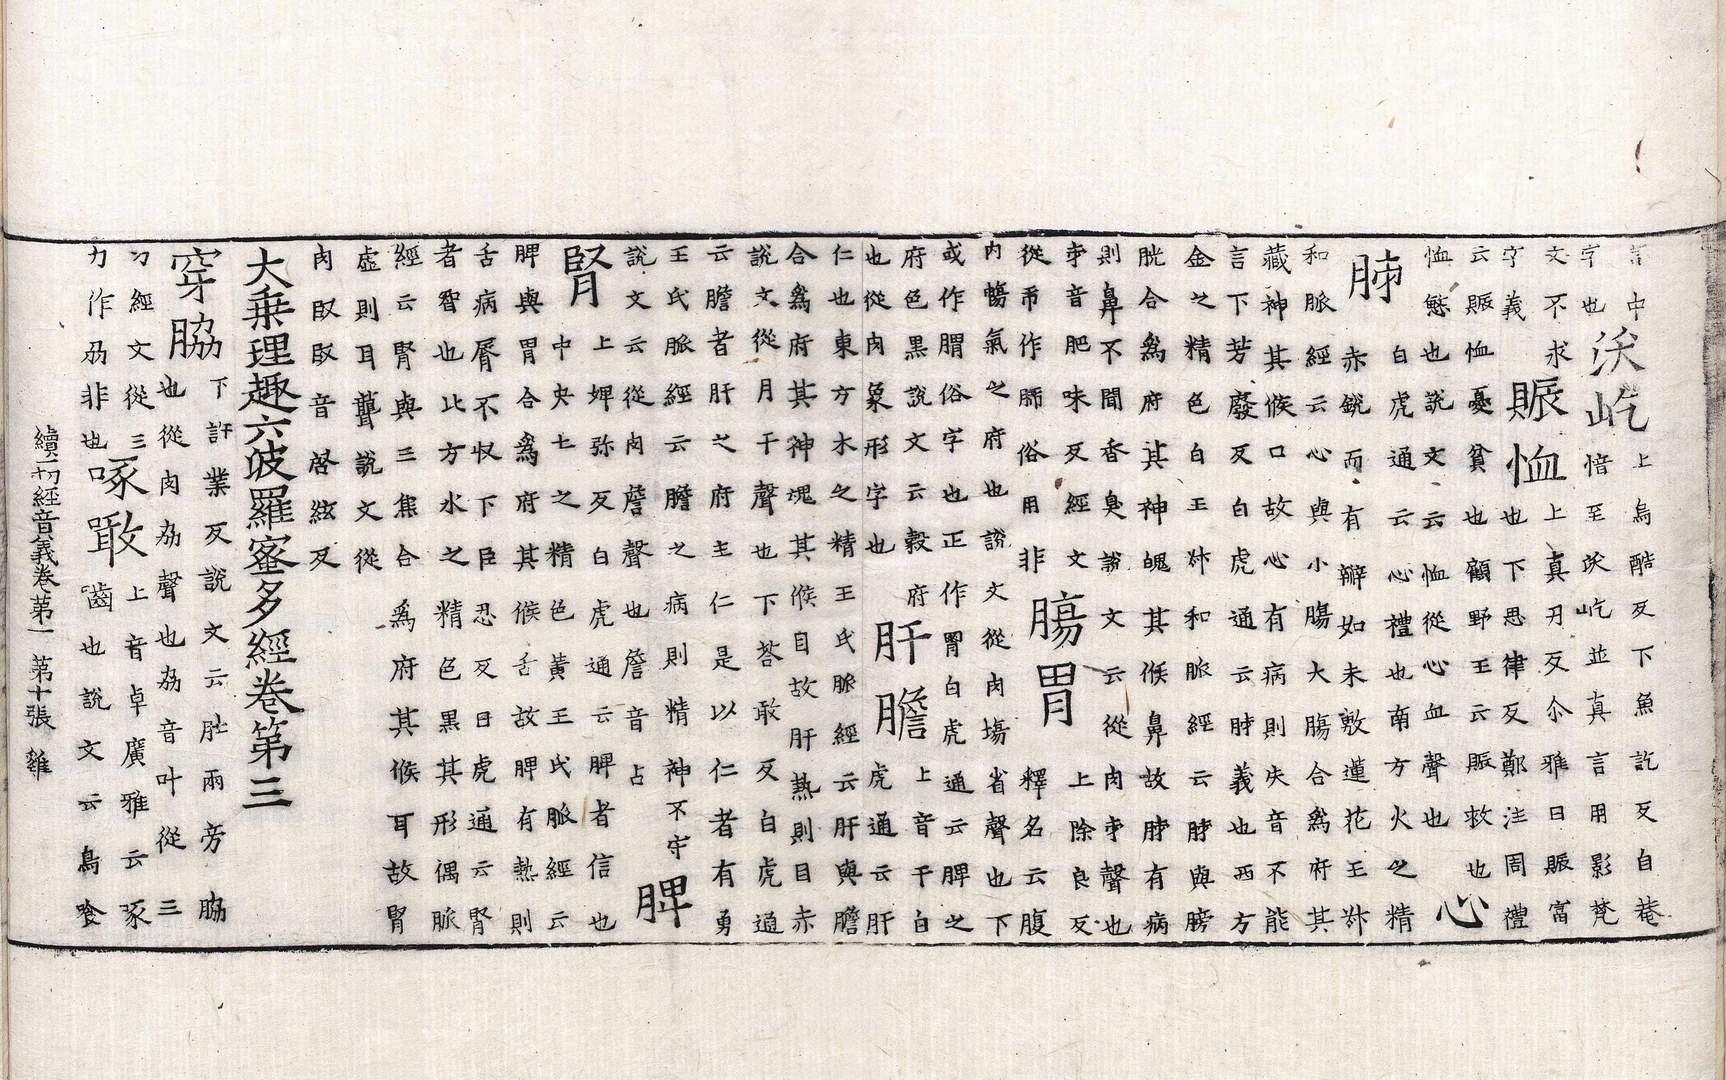 言中
字也
浂屹
上烏酷反下魚訖反自菴
愔至浂屹並真言用影梵
文不求
字義
賑恤
上真刃反尒雅曰賑富
也下思律反鄭注周禮
云賑恤憂貧也顧野王云賑救也
恤慜也說文云恤從心血聲也
心
肺
白虎通云心禮也南方火之精
赤銳而有瓣如未敷蓮花王叔
和脈經云心與小腸大腸合為府其
藏神其候口故心有病則失音不能
言下芳廢反白虎通云肺義也西方
金之精色白王叔和脈經云肺與膀
胱合為府其神魄其候鼻故肺有病
則鼻不聞香臭說文云從肉巿聲也
巿音肥味反經文
從帀作肺俗用非
腸胃
上除良反
釋名云腹
內暢氣之府也說文從肉塲省聲也下
或作膶俗字也正作胃白虎通云脾之
府色黑說文云穀府
也從肉象形字也
肝膽
上音干白
虎通云肝
仁也東方木之精王氏脈經云肝與膽
合為府其神魂其候目故肝熱則目赤
說文從月干聲也下荅敢反白虎通
云膽者肝之府主仁是以仁者有勇
王氏脈經云膽之病則精神不守
說文云從肉詹聲也詹音占
脾
腎
上婢弥反白虎通云脾者信也
中央七之精色黃王氏脈經云
脾與胃合為府其候舌故脾有熱則
舌病脣不收下臣忍反白虎通云腎
者智也北方水之精色黑其形偶脈
經云腎與三焦合為府其候耳故腎
虛則耳聾說文從
肉臤臤音啓絃反
大乘理趣六波羅蜜多經卷第三
穿脇
下許業反說文云肚兩旁脇
也從肉劦聲也劦音叶從三
力經文從三
力作刕非也
啄噉
上音卓廣雅云啄
齒也說文云鳥喰
續一切經音義卷第一 第十張 雞